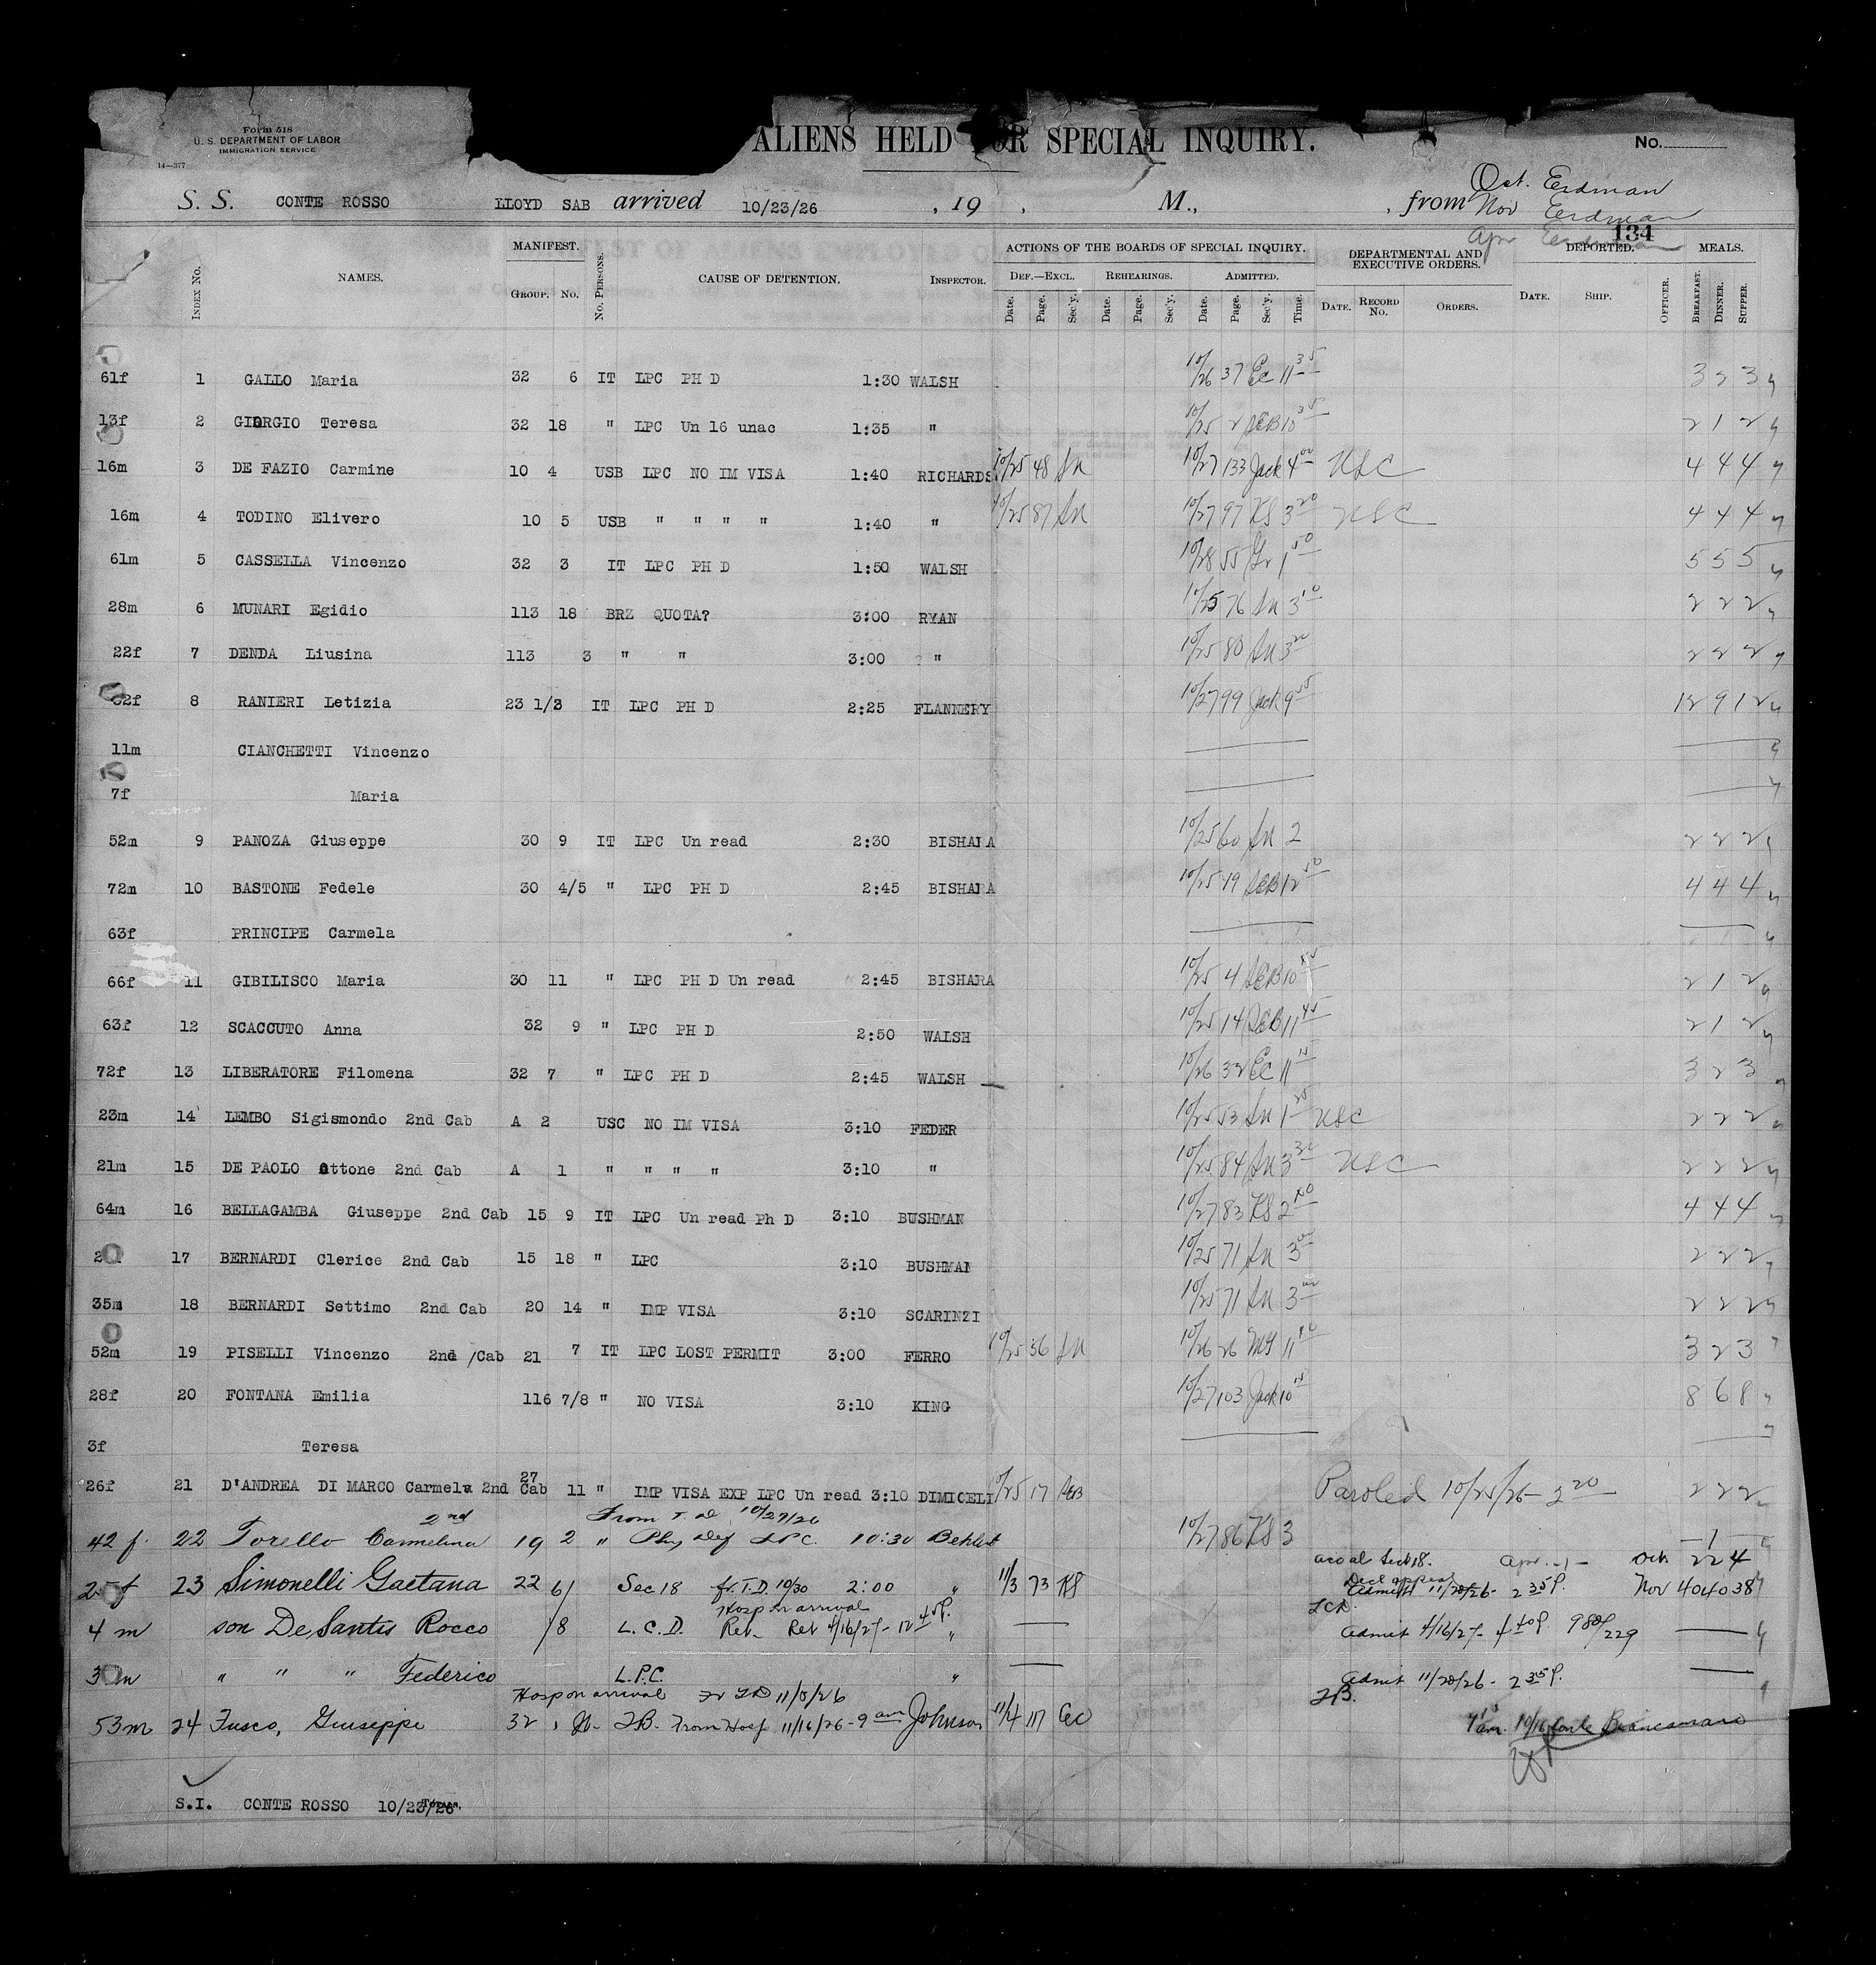 Form 518
U. S. DEPARTMENT OF LABOR
IMMIGRATION SERVICE
14—377
ALIENS HELD FOR SPECIAL INQUIRY.
No.
S. S. CONTE ROSSO LLOYD SAB arrived 10/23/26 , 19 , M., , from
Oct. Erdman
Nov Erdman
Apr Erdman
134
INDEX NO.
NAMES.
MANIFEST.
GROUP. NO.
NO. PERSONS.
CAUSE OF DETENTION.
INSPECTOR.
ACTIONS OF THE BOARDS OF SPECIAL INQUIRY.
DEF.—EXCL. REHEARINGS. ADMITTED.
Date. Page. Sec'y. Date. Page. Sec'y. Date. Page. Sec'y. Time.
DEPARTMENTAL AND EXECUTIVE ORDERS.
DATE. RECORD NO. ORDERS.
DEPORTED.
DATE. SHIP. OFFICER.
MEALS.
BREAKFAST. DINNER. SUPPER.
61f 1 GALLO Maria 32 6 IT LPC PH D 1:30 WALSH 10/26 37 Ec 11 35 3 2 3
13f 2 GIORGIO Teresa 32 18 " LPC Un 16 unac 1:35 " 10/25 2 AEB 10 35 2 1 2
16m 3 DE FAZIO Carmine 10 4 USB LPC NO IM VISA 1:40 RICHARDS 10/25 48 Sn 10/27 133 Jack 4 00 USC 4 4 4
16m 4 TODINO Elivero 10 5 USB " " " " 1:40 " 10/25 87 Sn 10/27 97 KS 3 20 USC 4 4 4
61m 5 CASSELLA Vincenzo 32 3 IT LPC PH D 1:50 WALSH 10/28 55 Gr 1 50 5 5 5
28m 6 MUNARI Egidio 113 18 BRZ QUOTA? 3:00 RYAN 10/25 76 Sn 3 10 2 2 2
22f 7 DENDA Liusina 113 3 " " 3:00 " 10/25 80 Sn 3 20 2 2 2
62f 8 RANIERI Letizia 23 1/3 IT LPC PH D 2:25 FLANNERY 10/27 99 Jack 9 55 12 9 12
11m CIANCHETTI Vincenzo
7f Maria
52m 9 PANOZA Giuseppe 30 9 IT LPC Un read 2:30 BISHARA 10/25 60 Sn 2 2 2 2
72m 10 BASTONE Fedele 30 4/5 " LPC PH D 2:45 BISHARA 10/25 19 AEB 12 50 4 4 4
63f PRINCIPE Carmela
66f 11 GIBILISCO Maria 30 11 " LPC PH D Un read 2:45 BISHARA 10/25 4 AEB 10 2 1 2
63f 12 SCACCUTO Anna 32 9 " LPC PH D 2:50 WALSH 10/25 14 AEB 11 45 2 1 2
72f 13 LIBERATORE Filomena 32 7 " LPC PH D 2:45 WALSH 10/26 32 Ec 11 15 3 2 3
23m 14 LEMBO Sigismondo 2nd Cab A 2 USC NO IM VISA 3:10 FEDER 10/25 53 Sn 1 20 USC 2 2 2
21m 15 DE PAOLO Ottone 2nd Cab A 1 " " " " 3:10 " 10/25 84 Sn 3 30 USC 2 2 2
64m 16 BELLAGAMBA Giuseppe 2nd Cab 15 9 IT LPC Un read Ph D 3:10 BUSHMAN 10/27 83 KS 2 40 4 4 4
17 BERNARDI Clerice 2nd Cab 15 18 " LPC 3:10 BUSHMAN 10/25 71 Sn 3 00 2 2 2
35m 18 BERNARDI Settimo 2nd Cab 20 14 " IMP VISA 3:10 SCARINZI 10/25 71 Sn 3 00 2 2 2
52m 19 PISELLI Vincenzo 2nd /Cab 21 7 IT LPC LOST PERMIT 3:00 FERRO 10/25 36 Sn 10/26 26 11 40 3 2 3
28f 20 FONTANA Emilia 116 7/8 " NO VISA 3:10 KING 10/27 103 Jack 10 15 8 6 8
3f Teresa
26f 21 D'ANDREA DI MARCO Carmela 2nd Cab 27 11 " IMP VISA EXP LPC Un read 3:10 DIMICELI 10/25 17 AEB Paroled 10/25/26 - 3 20 2 2 2
42 f. 22 Torello Carmelina 2nd 19 2 " From T.D. 10/27/26 Phy Def LPC. 10:30 10/27 86 KS 3 — 1 —
f 23 Simonelli Gaetana 22 6/ Sec 18 fr. T.D. 10/30 2:00 " 11/3 73 KS Admit 11/20/26 - 2 35 P. Oct 2 2 4
Nov 40 40 38
4 m son De Santis Rocco /8 L.C.D. Hosp on arrival Ret 4/16/27 - 12 45 P. " — LCD. Admit 4/16/27 - 4 40 P. 980/229
3 m " " " Federico L.P.C. " — Admit 11/20/26 - 2 35 P.
53m 24 Fusco, Giuseppe 32 Hosp on arrival Fr TD 11/8/26 TB. From Hosp 11/16/26 - 9 am Johnson 11/4 117 Ec TB. Conte Biancamano
S.I. CONTE ROSSO 10/23/26